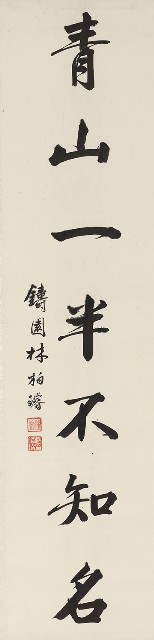 青山一半不知名
鑄園林柏壽